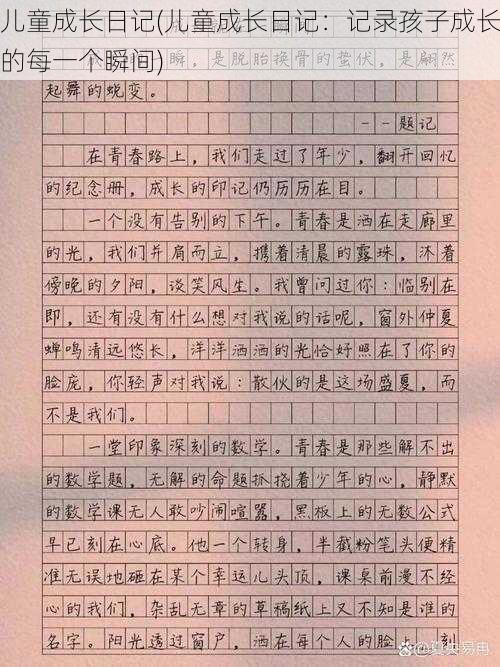 儿童成长日记(儿童成长日记：记录孩子成长
的每一个瞬间)
瞬，是脱胎换骨的蛰伏，是翩然
起舞的蜕变。
——题记
在青春路上，我们走过了年少，翻开回忆
的纪念册，成长的印记仍历历在目。
一个没有告别的下午。青春是洒在走廊里
的光，我们并肩而立，携着清晨的露珠，沐着
傍晚的夕阳，谈笑风生。我曾问过你：临别在
即，还有没有什么想对我说的话呢，窗外仲夏
蝉鸣清远悠长，洋洋洒洒的光恰好照在了你的
脸庞，你轻声对我说：散伙的是这场盛夏，而
不是我们。
一堂印象深刻的数学。青春是那些解不出
的数学题，无解的命题抓挠着少年的心，静默
的数学课无人敢吵闹喧嚣，黑板上的无数公式
早已刻在心底。他一个转身，半截粉笔头便精
准无误地砸在某个幸运儿头顶，课桌前漫不经
心的我们，杂乱无章的草稿纸上又不知是谁的
名字。阳光透过窗户，洒在每个人的脸上，刻